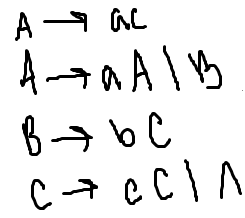 A → ac
A → aA | B
B → bC
C → cC | Λ